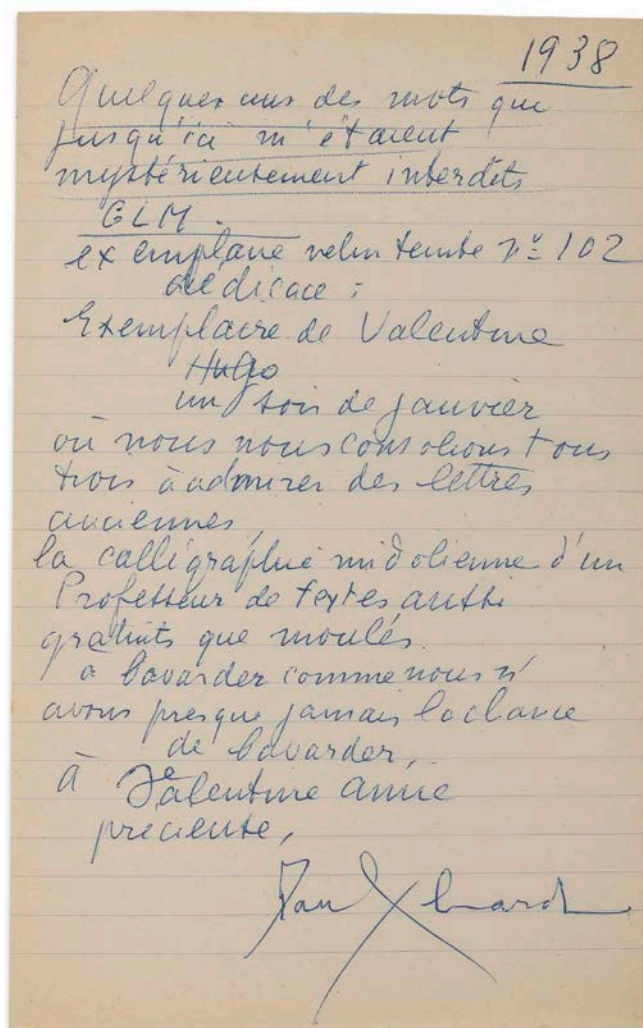 1938
Quelques uns des mots que
jusqu'ici m'étaient
mystérieusement interdits
GLM.
exemplaire velin teinté nº 102
dédicace :
Exemplaire de Valentine
Hugo
un soir de janvier
où nous nous consolions tous
trois à admirer des lettres
anciennes,
la calligraphie midolienne d'un
Professeur de textes aussi
gratuits que moulés.
à bavarder comme nous n'
avons presque jamais la chance
de bavarder,
à Valentine amie
précieuse,
Paul Eluard